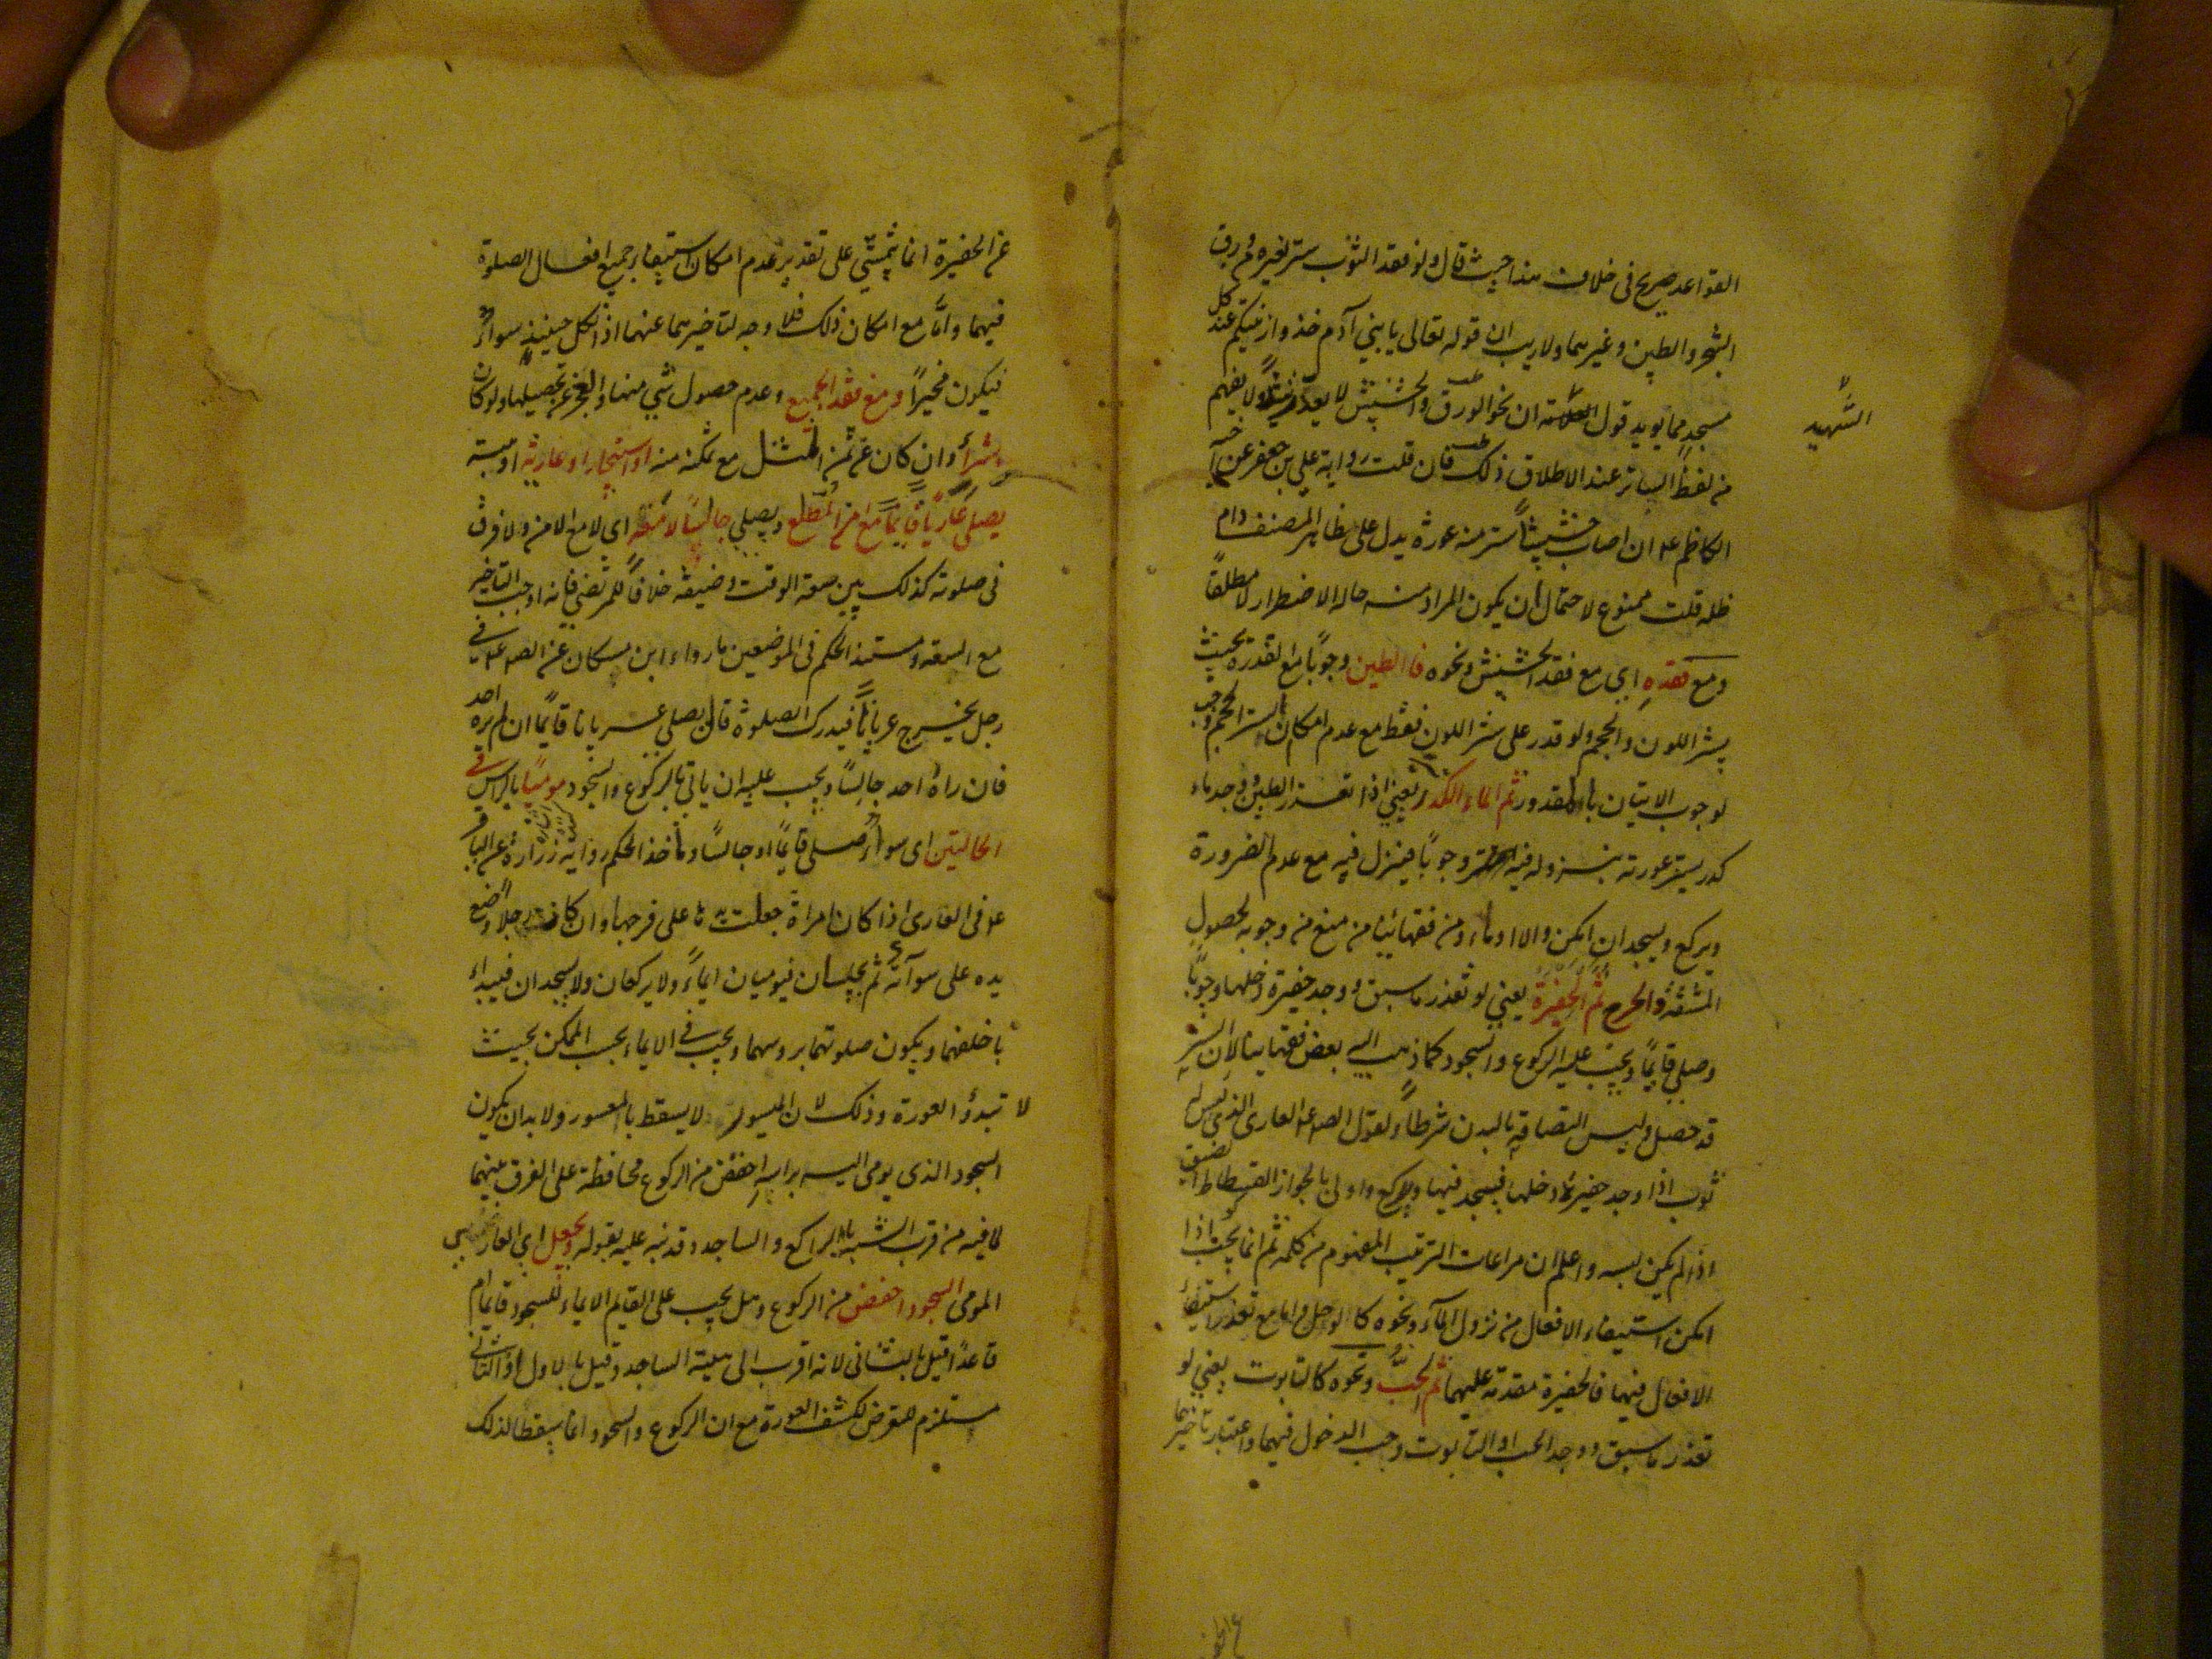 القواعد صريح فى خلاف هذا حيث قال ولو فقد الثوب ستر بغيره من ورق
الشجر والطين وغيرهما ولا ريب ان قوله تعالى يا بني آدم خذوا زينتكم عند كل
مسجد مما يويد قول العلامة ان نحو الورق والحشيش لا يعد زينة ولا يفهم
الشهيد
من لفظ الساتر عند الاطلاق ذلك فان قلت رواية علي بن جعفر عن اخيه
الكاظم ع ان اصاب حشيشا ستر منه عورته يدل على ظاهر المصنف دام
ظله قلت ممنوع لاحتمال ان يكون المراد منه حالة الاضطرار لا مطلقا
ومع فقده اي مع فقد الحشيش ونحوه فالطين وجوبا مع القدرة بحيث
يستر اللون والحجم ولو قدر على ستر اللون فقط مع عدم امكان ستر الحجم وجب
لوجوب الاتيان بالمقدور ثم الماء الكدر يعني اذا تعذر الطين ووجد ماء
كدر يستر عورته بنزوله فيه وجوبا فينزل فيه مع عدم الضرورة
ويركع ويسجد ان امكن والا اوماء ومن فقهائنا من منع من وجوبه لحصول
المشقة والحرج ثم الحفيرة يعني لو تعذر ما سبق ووجد حفيرة دخلها وجوبا
وصلى قايما ويجب عليه الركوع والسجود كما ذهب اليه بعض فقهائنا لان الستر
قد حصل وليس التصاقه بالبدن شرطا ولقول الصع العارى الذي ليس له
ثوب اذا وجد حفيرة دخلها فيسجد فيها ويركع واولى بالجواز الفسطاط الضيق
اذا لم يكن لبسه واعلم ان مراعات الترتيب المفهوم من كلمة ثم انما يجب اذا
امكن استيفاء الافعال من نزول الماء ونحوه كالوحل واما مع تعذر استيفاء
الافعال فيهما فالحفيرة مقدمة عليهما ثم الحب ونحوه كالتابوت يعني لو
تعذر ما سبق ووجد الحب او التابوت وجب الدخول فيهما واعتبار تاخيرهما
عن الحفيرة
عن الحفيرة انما يتمشى على تقدير عدم امكان استيفاء جميع افعال الصلوة
فيهما واما مع امكان ذلك فلا وجه لتاخيرهما عنهما اذ الكل حينئذ سواء
فيكون مخيرا ومع فقد الجميع وعدم حصول شي منها والعجز عن تحصيلها ولو كان
بشراء وان كان عن ثمن المثل مع تمكنه منه او استيجار او عارية او هبة
يصلي عاريا قايما مع امن المطلع ويصلي جالسا لا معه اى لا مع الامن ولا فرق
فى صلوته كذلك بين سعة الوقت وضيقه خلافا للمرتضي فانه اوجب التاخير
مع السعة ومستند الحكم فى الموضعين ما رواه ابن مسكان عن الصع فى
رجل يخرج عريانا فيدرك الصلوة قال يصلي عريانا قايما ان لم يره احد
فان راه احد جالسا ويجب عليه ان ياتي بالركوع والسجود موميا بالراس في
الحالتين اى سواء صلى قايما او جالسا وماخذ الحكم رواية زرارة عن الباقر
ع فى العارى اذا كان امراة جعلت يدها على فرجها وان كان رجلا وضع
يده على سوآته ثم يجلسان فيوميان ايماء ولا يركعان ولا يسجدان فيبداء
ما خلفهما ويكون صلوتهما بروسهما ويجب في الايماء بحسب الممكن بحيث
لا تبدؤ العورة وذلك لان الميسور لا يسقط بالمعسور ولا بد ان يكون
السجود الذى يومى اليه براسه اخفض من الركوع محافظة على الفرق بينهما
لما فيه من قرب الشبه بالراكع والساجد وقد نبه عليه بقوله ويجعل اى العارى
المومى السجود اخفض من الركوع وهل يجب على القايم الايماء للسجود قايما ام
قاعدا قيل بالثانى لانه اقرب الى هيئة الساجد وقيل بالاول اذ الثانى
مستلزم للتعرض لكشف العورة مع ان الركوع والسجود انما يسقطا لذلك